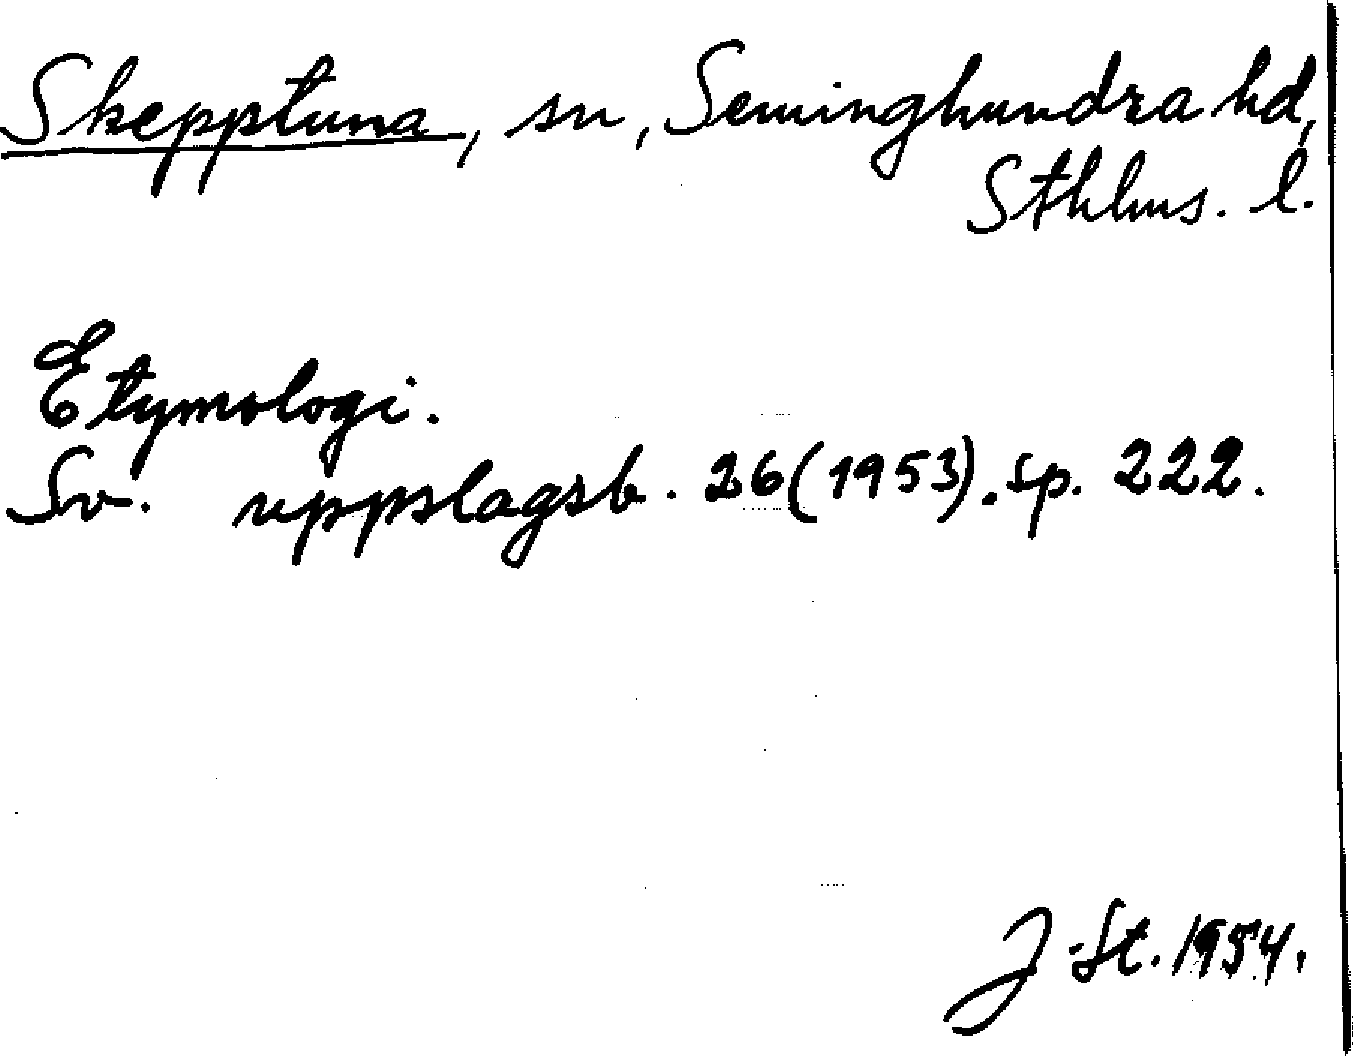 Skepptuna, sn, Seminghundra hd,
Sthlms. l.
Etymologi.
Sv. uppslagsb. 26(1953). sp. 222.
J. St. 1954.